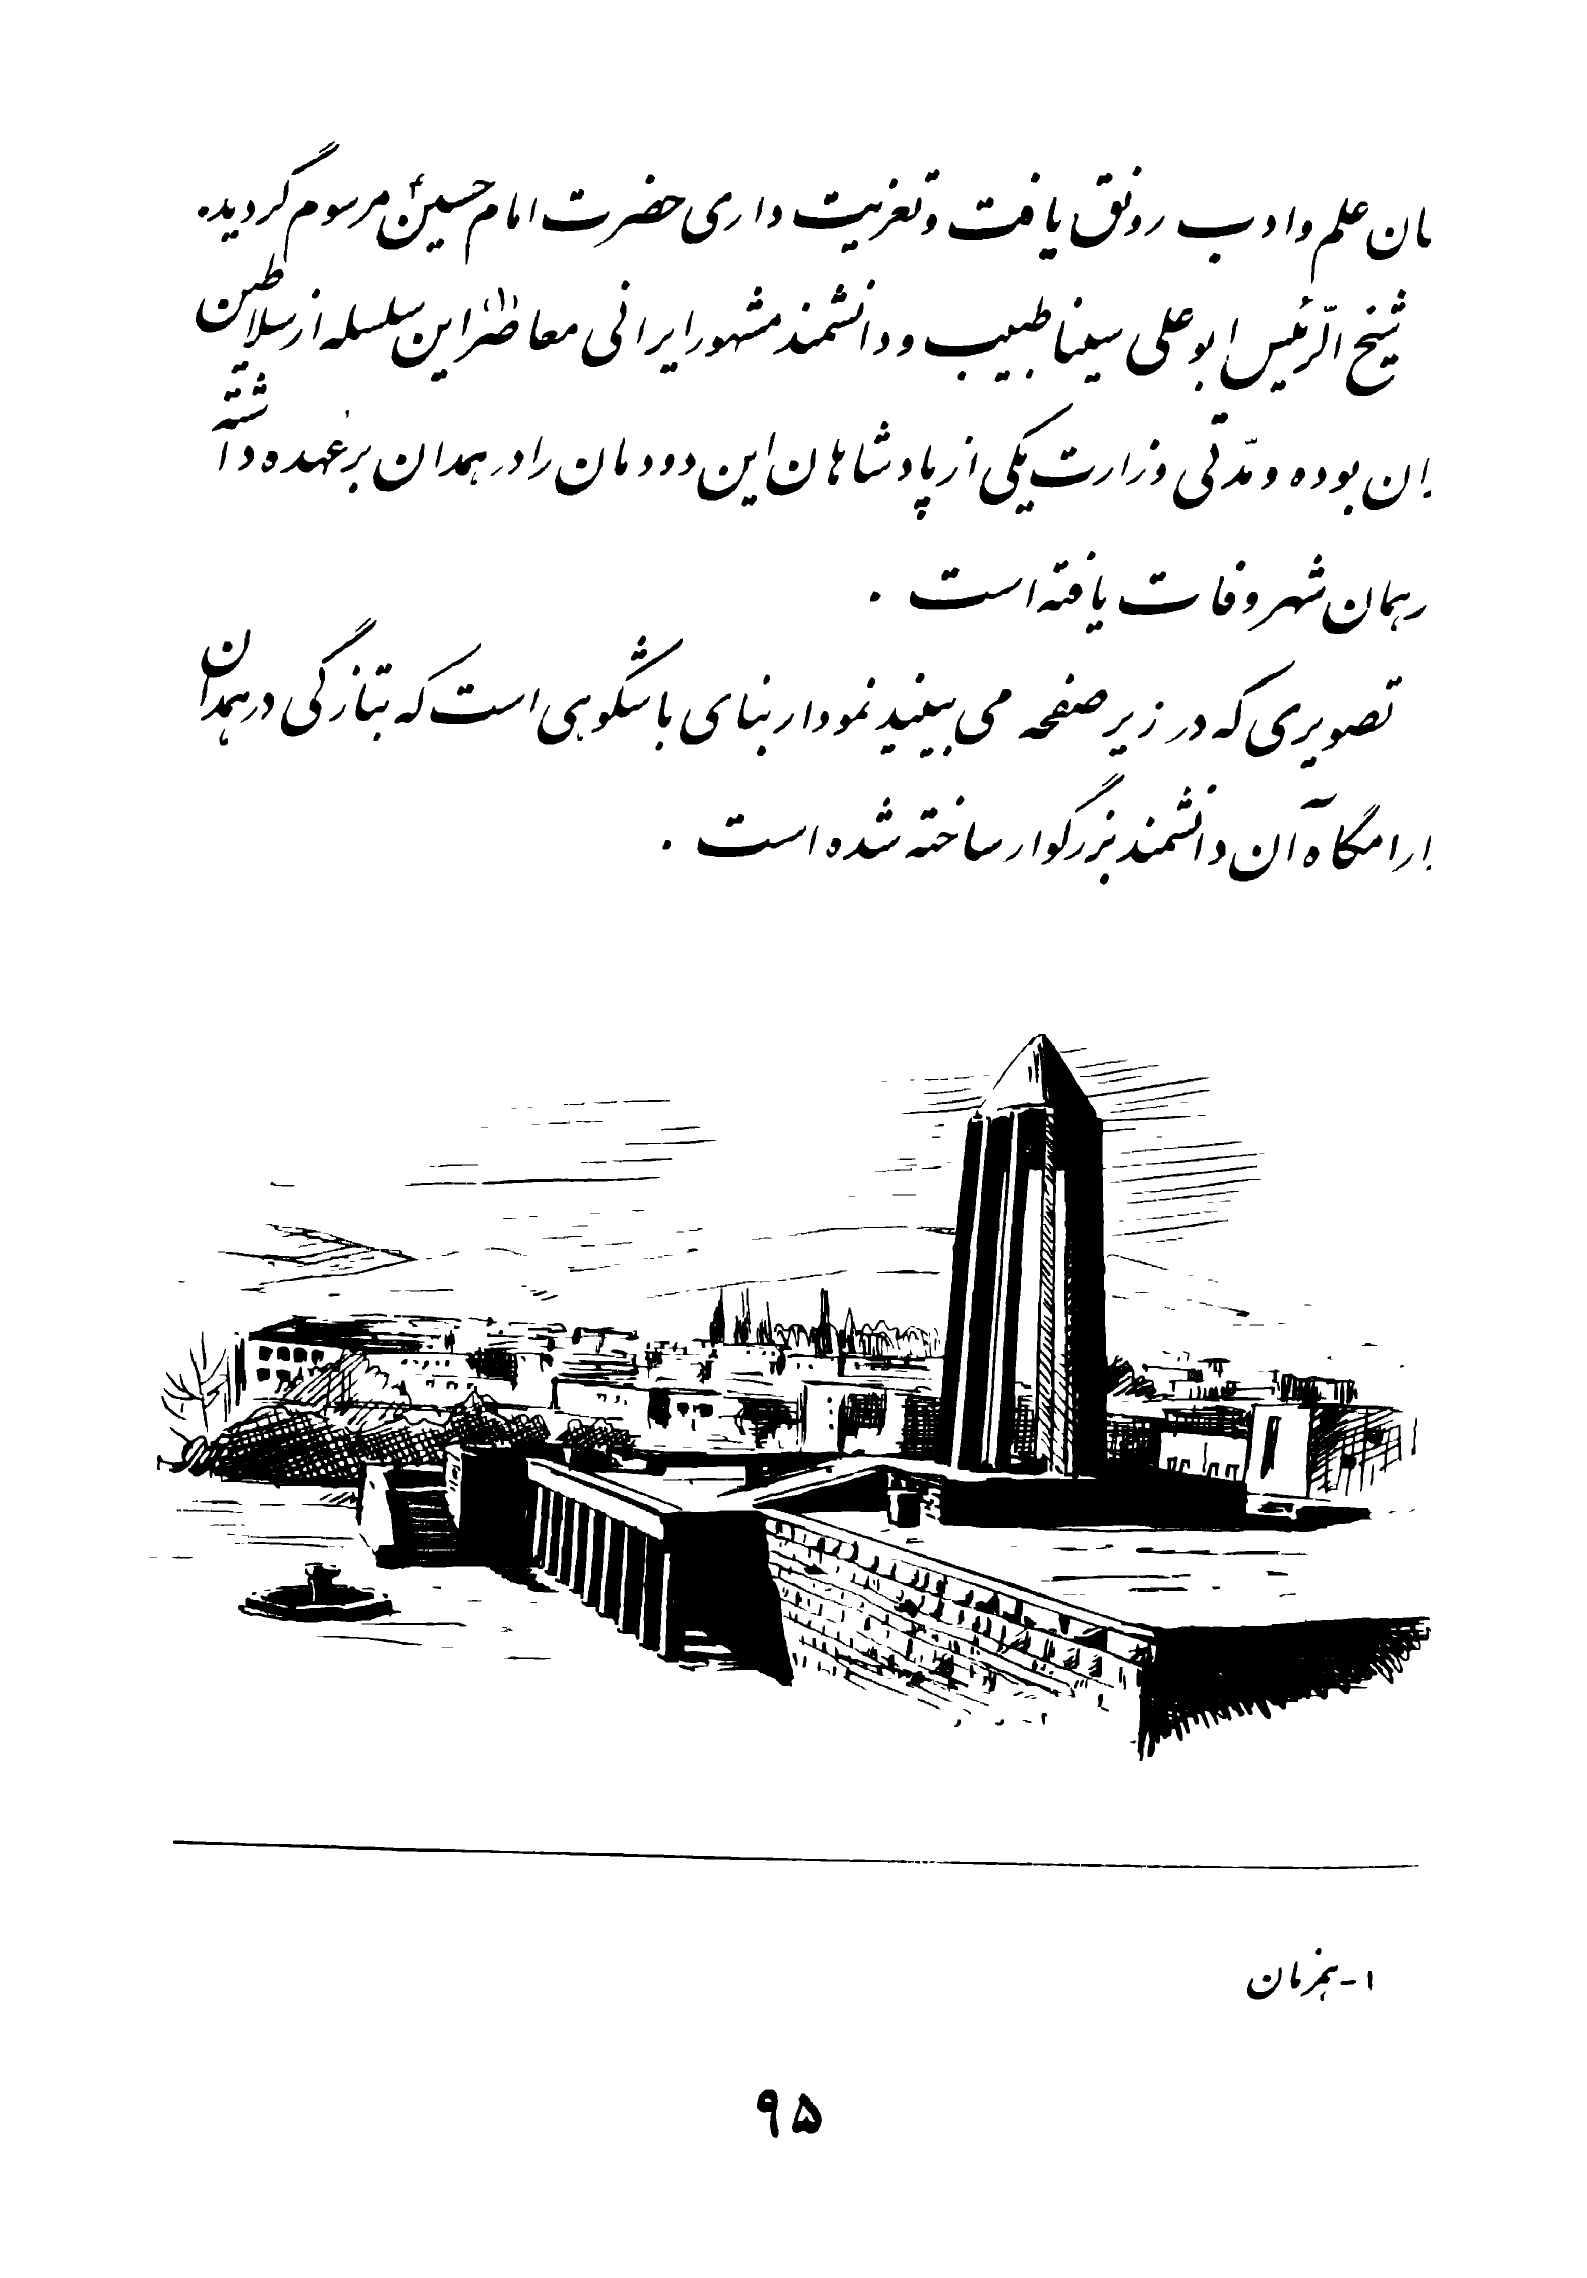 مان علم و ادب رونق یافت و تعزیت داری حضرت امام حسینؑ مرسوم گردید.
شیخ الرّئیس ابوعلی سینا طبیب و دانشمند مشهور ایرانی معاصر(۱) این سلسله از سلاطین
ران بوده و مدّتی وزارت یکی از پادشاهان این دودمان را در همدان برعهده داشته
رهمان شهر وفات یافته است .
تصویری که در زیر صفحه می بینید نمودار بنای باشکوهی است که بتازگی در همدان
رارامگاه آن دانشمند بزرگوار ساخته شده است .
۱- همزمان
۹۵